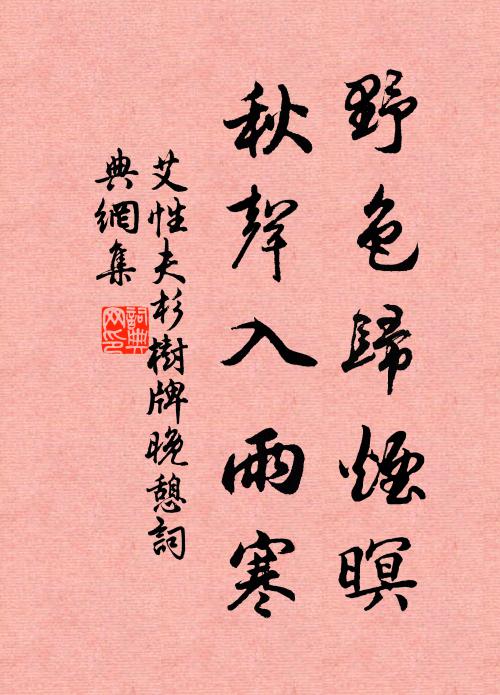 野色歸煙暝
秋聲入雨寒
艾性夫杉樹牌晚憩詞
典網集
詞典网印